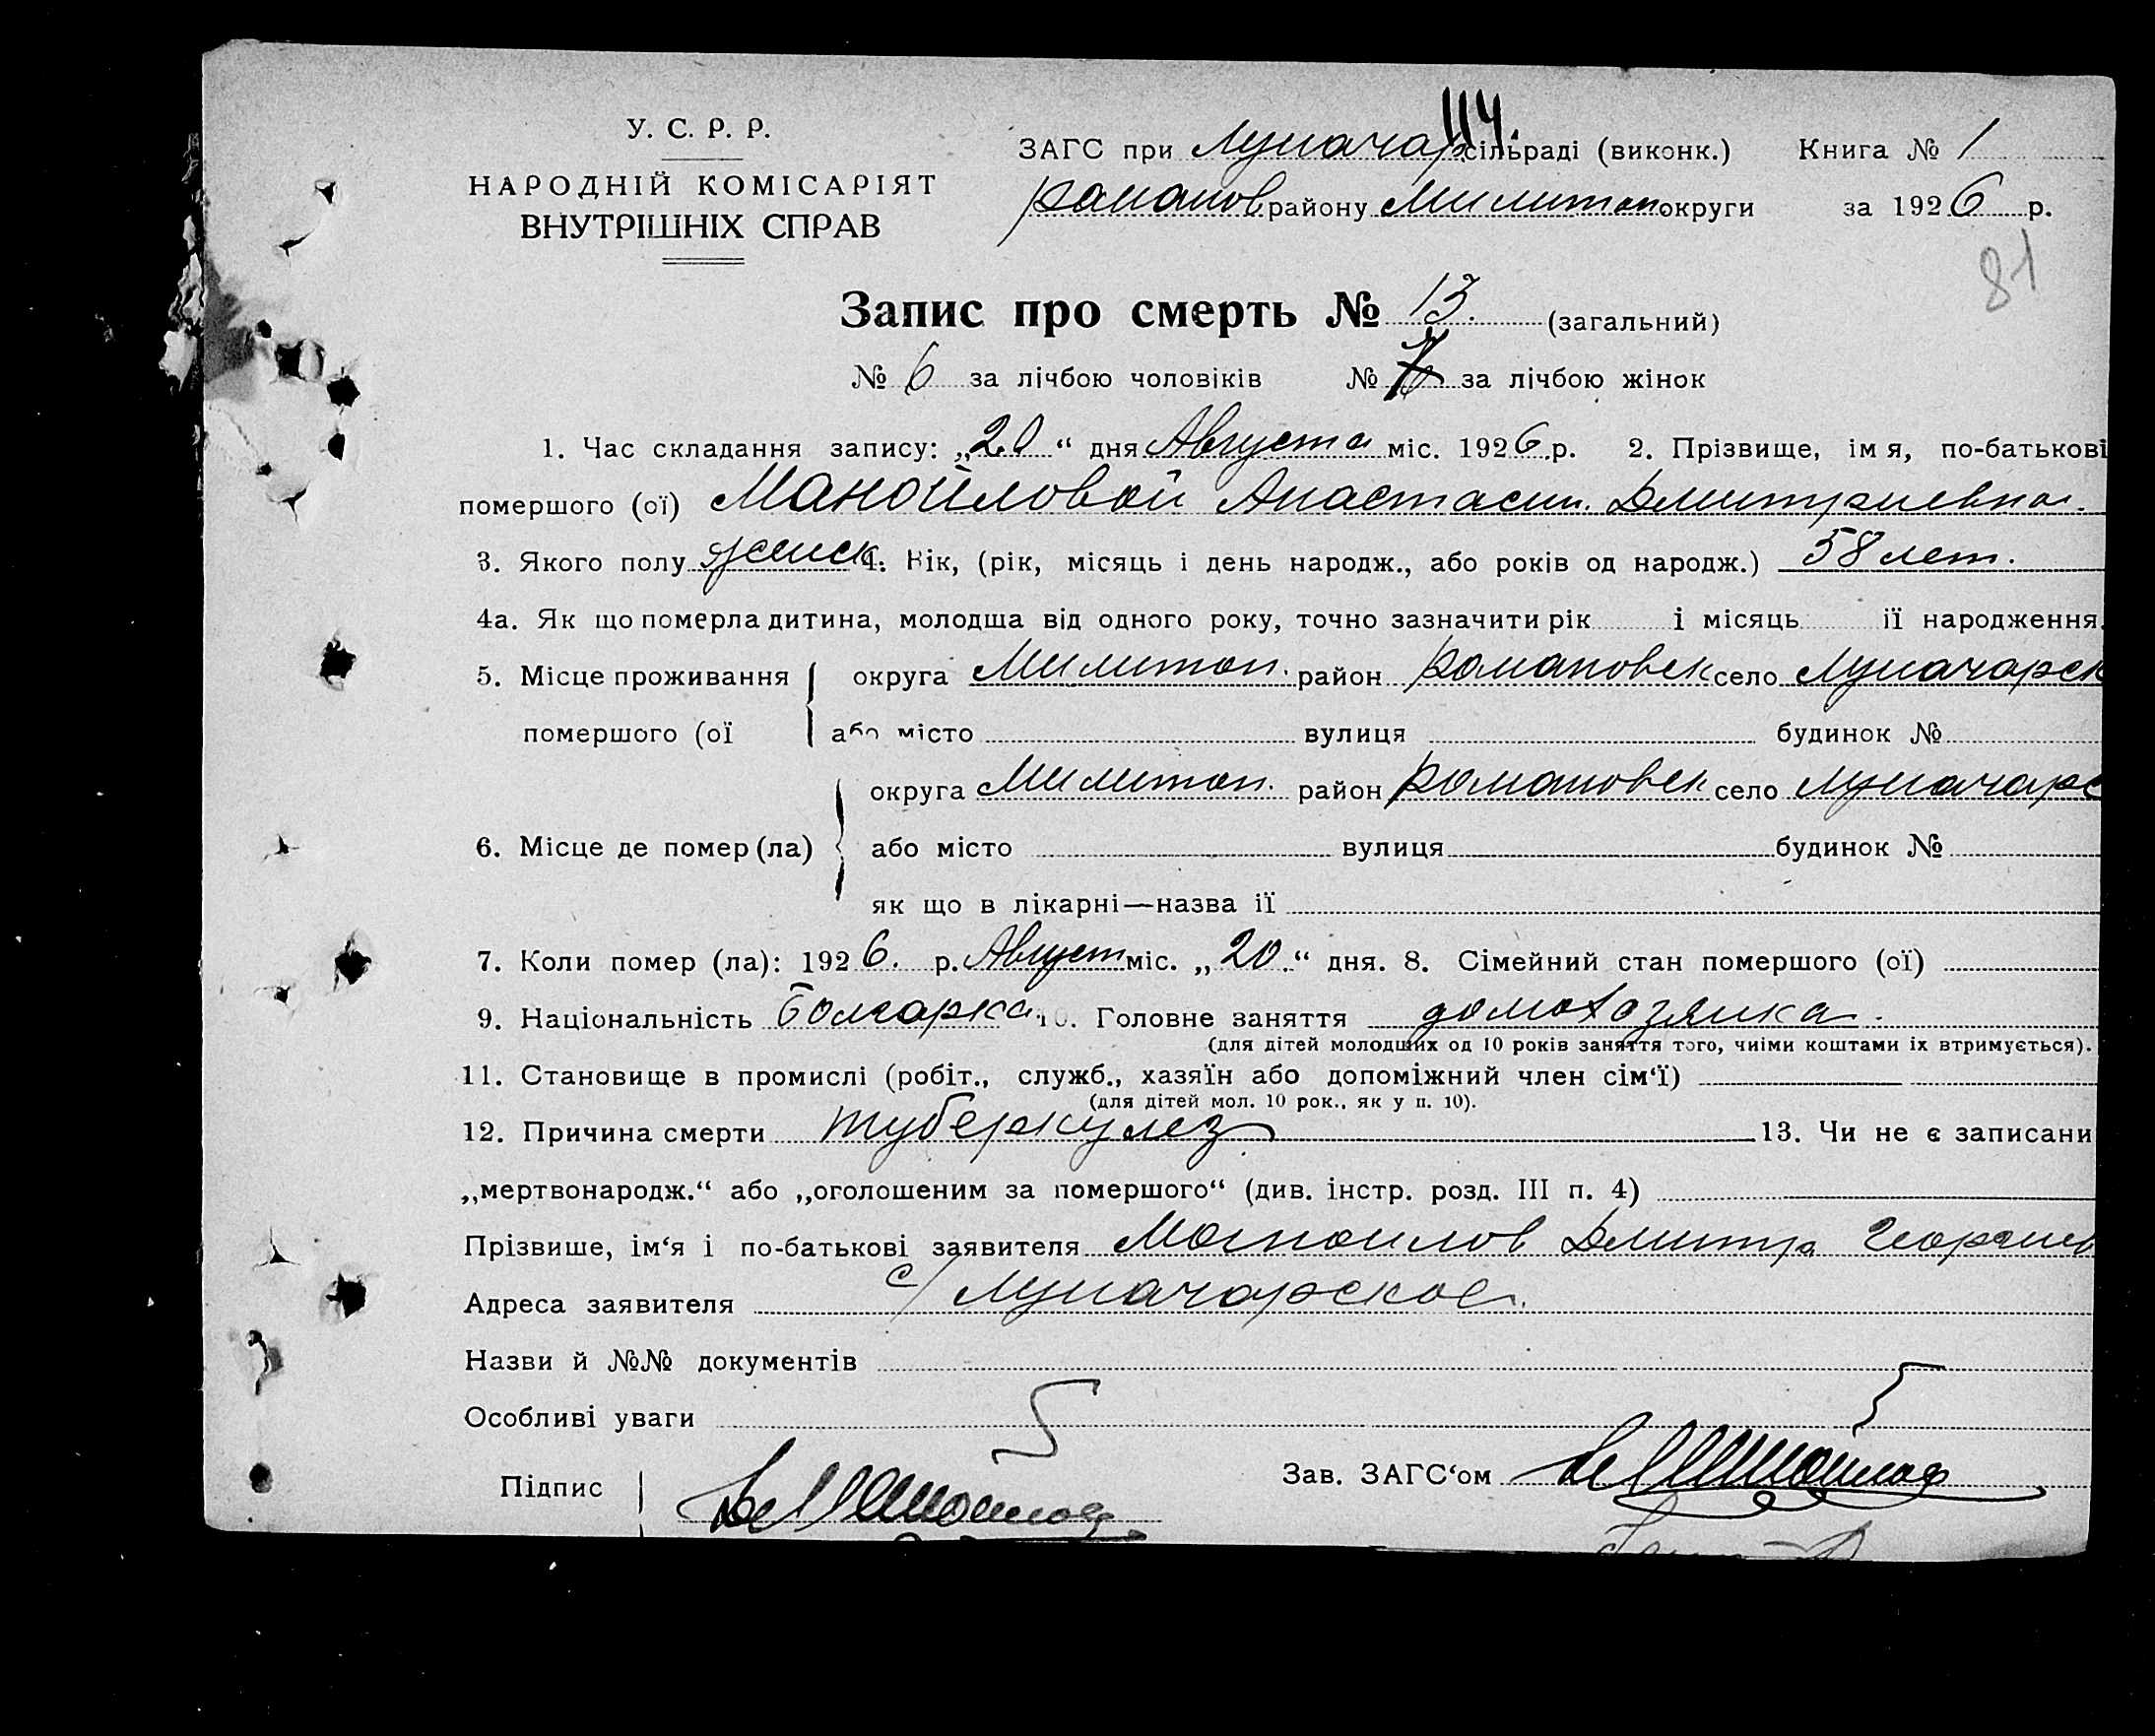 114.
У. С. Р. Р.
ЗАГС при Луначар сільраді (виконк.) Книга № 1
НАРОДНІЙ КОМІСАРІЯТ
Романов. району Милитоп округи за 1926 р.
ВНУТРІШНІХ СПРАВ
81
Запис про смерть № 13. (загальний)
№ 6 за лічбою чоловіків № 7 за лічбою жінок
1. Час складання запису: „20“ дня Августа міс. 1926 р. 2. Прізвище, імя, по-батькові
помершого (ої) Манойловой Анастасии. Дмитриевна.
3. Якого полу женск 4. Вік, (рік, місяць і день народж., або років од народж.) 58 лет.
4а. Як що померла дитина, молодша від одного року, точно зазначити рік і місяць її народження.
5. Місце проживання округа Милитоп. район Романовск село Луначарск
помершого (ої або місто вулиця будинок №
округа Милитоп. район Романовск село Луначарс
6. Місце де помер (ла) або місто вулиця будинок №
як що в лікарні—назва її
7. Коли помер (ла): 1926. р. Август міс. „20.“ дня. 8. Сімейний стан помершого (ої)
9. Національність Болгарка. 10. Головне заняття домохозяйка.
(для дітей молодших од 10 років заняття того, чиїми коштами їх втримується).
11. Становище в промислі (робіт., служб., хазяїн або допоміжний член сім‘ї)
(для дітей мол. 10 рок., як у п. 10).
12. Причина смерти туберкулез 13. Чи не є записани
„мертвонародж.“ або „оголошеним за помершого“ (див. інстр. розд. III п. 4)
Прізвише, ім‘я і по-батькові заявителя Маноилов Дмитр Георгиев
Адреса заявителя с/ Луначарское.
Назви й №№ документів
Особливі уваги
Підпис Д Манойлов Зав. ЗАГС‘ом Манойлов